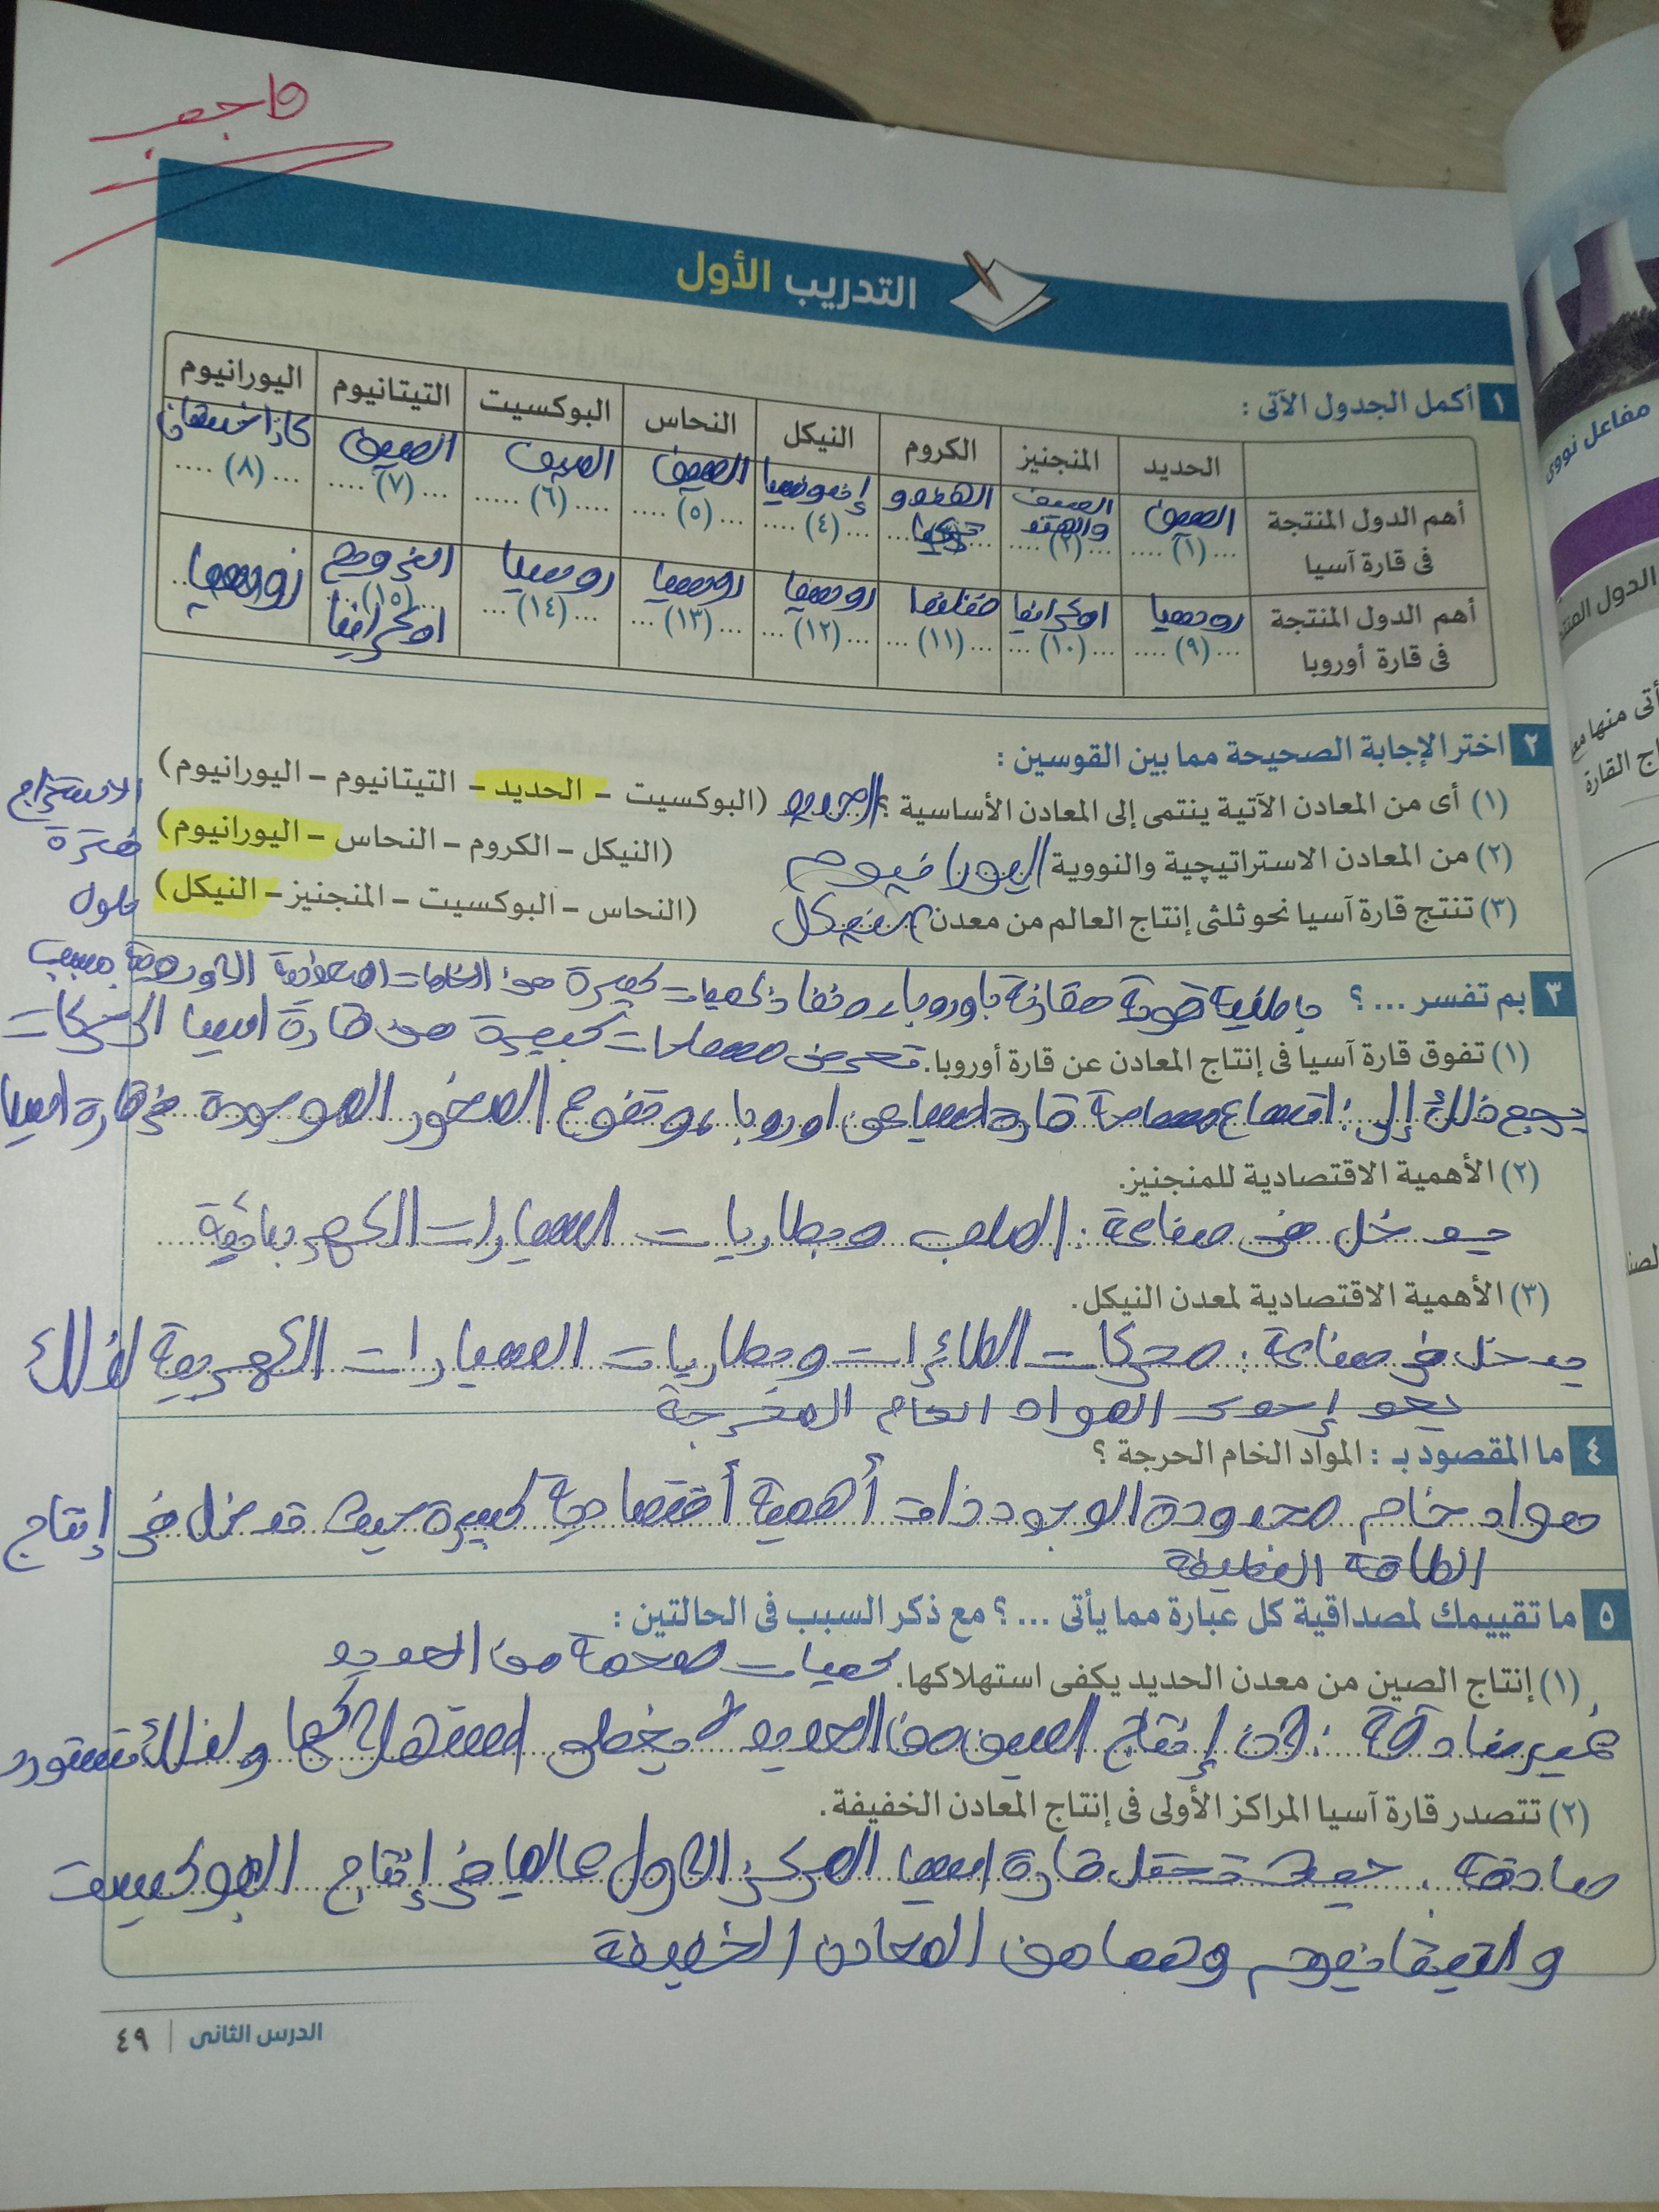 التدريب الأول
١ أكمل الجدول الآتى :
الحديد المنجنيز الكروم النيكل النحاس البوكسيت التيتانيوم اليورانيوم
أهم الدول المنتجة فى قارة آسيا
الصين (١)
الصين والهند (٢)
الهند
إندونيسيا (٤)
الصين (٥)
الصين (٦)
الصين (٧)
كازاخستان (٨)
أهم الدول المنتجة فى قارة أوروبا
روسيا (٩)
اوكرانيا (١٠)
فنلندا (١١)
روسيا (١٢)
روسيا (١٣)
روسيا (١٤)
النرويج (١٥) اوكرانيا
روسيا
٢ اختر الإجابة الصحيحة مما بين القوسين :
(١) أى من المعادن الآتية ينتمى إلى المعادن الأساسية ؟ الحديد (البوكسيت – الحديد – التيتانيوم – اليورانيوم)
(٢) من المعادن الاستراتيچية والنووية اليورانيوم (النيكل – الكروم – النحاس – اليورانيوم)
(٣) تنتج قارة آسيا نحو ثلثى إنتاج العالم من معدن النيكل (النحاس – البوكسيت – المنجنيز – النيكل)
الاستخراج
فترة
طول
٣ بم تفسر ... ؟ باطنية قوية مقارنة بأوروبا، كميات كبيرة من الخامات المعدنية الأوروبية بسبب
(١) تفوق قارة آسيا فى إنتاج المعادن عن قارة أوروبا. تعرض مساحات كبيرة من قارة اسيا الى حركات
يرجع ذلك إلى : اتساع مساحة قارة اسيا عن اوروبا، وتنوع الصخور الموجودة في قارة اسيا
(٢) الأهمية الاقتصادية للمنجنيز.
يدخل في صناعة : الصلب وبطاريات السيارات الكهربائية
(٣) الأهمية الاقتصادية لمعدن النيكل.
يدخل في صناعة : محركات الطائرات وبطاريات السيارات الكهربية لذلك
يعد إحدى المواد الخام الحرجة
٤ ما المقصود بـ : المواد الخام الحرجة ؟
مواد خام محدودة الوجود ذات أهمية أقتصادية كبيرة حيث تدخل في إنتاج
الطاقة النظيفة
٥ ما تقييمك لمصداقية كل عبارة مما يأتى ... ؟ مع ذكر السبب فى الحالتين :
(١) إنتاج الصين من معدن الحديد يكفى استهلاكها. كميات ضخمة من الحديد
غير صادقة : لأن إنتاج الصين من الحديد لا يغطي استهلاكها ولذلك تستورد
(٢) تتصدر قارة آسيا المراكز الأولى فى إنتاج المعادن الخفيفة.
صادقة : حيث تحتل قارة اسيا المركز الأول عالميا في إنتاج البوكسيت
والتيتانيوم وهما من المعادن الخفيفة
الدرس الثانى | ٤٩
مفاعل نووى
الدول المنتج
أتى منها مع
ج القارة